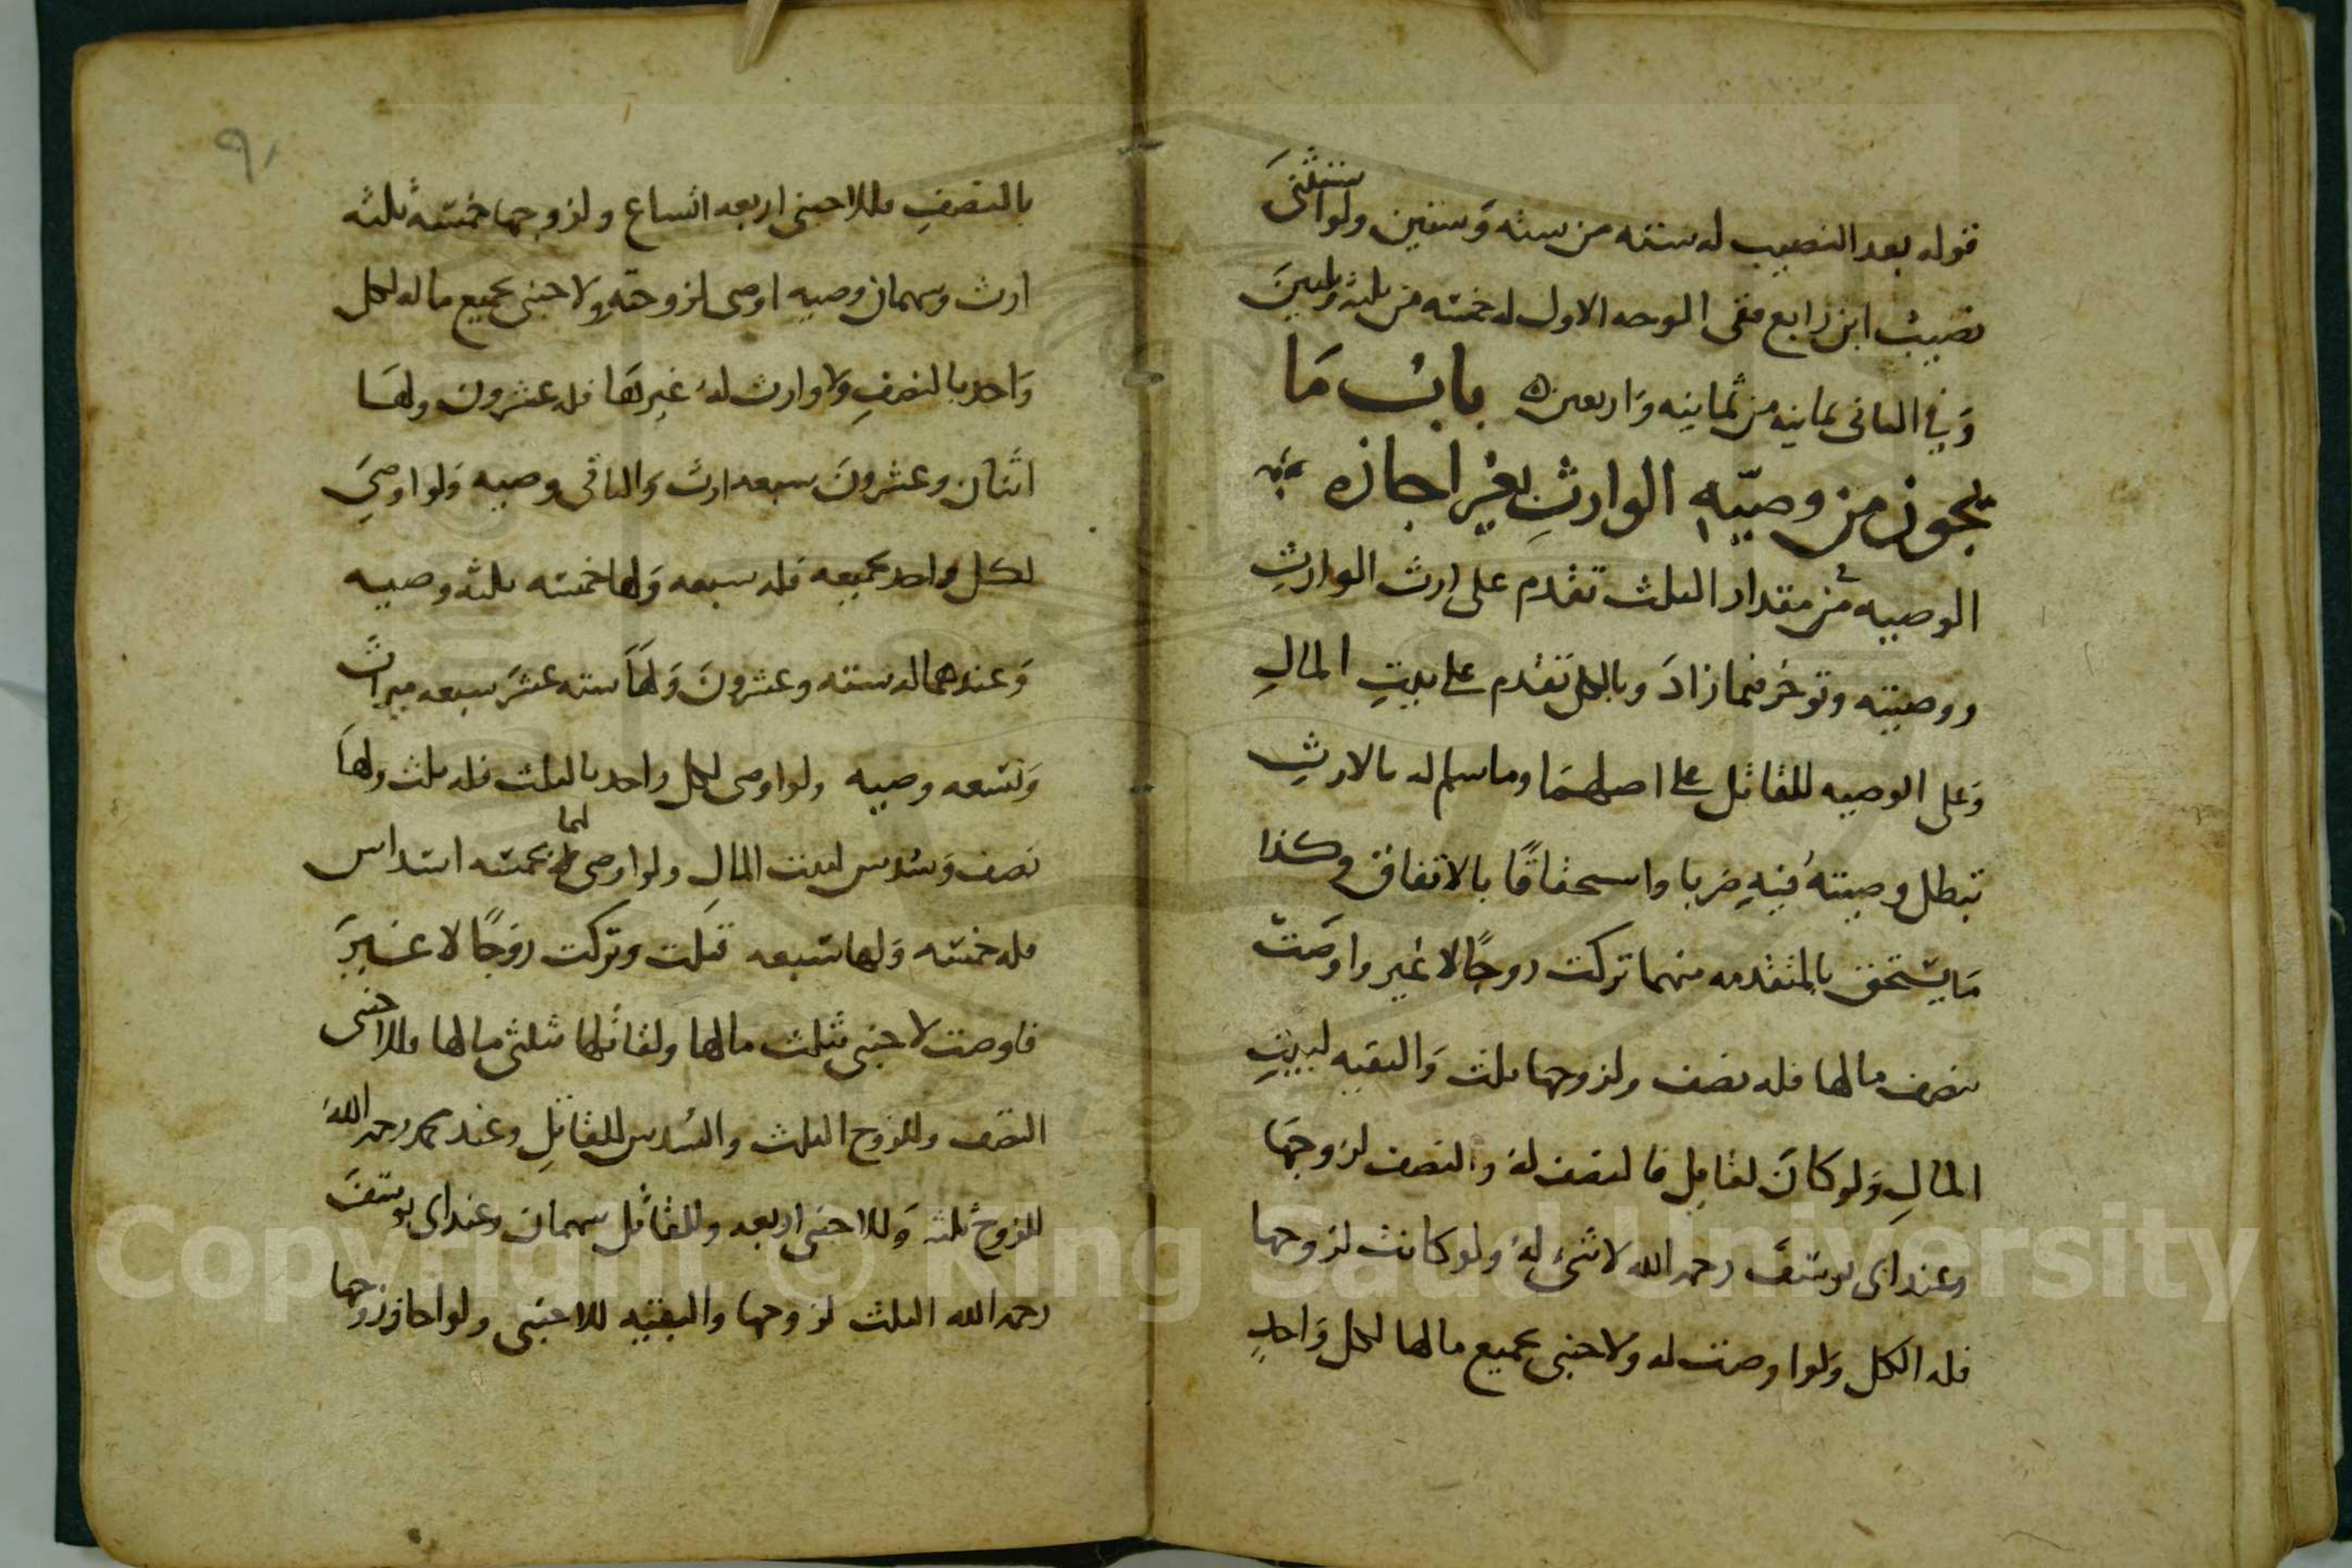 قوله بعد النصيب له ستة من ستة وستين ولو استثنى
نصيب ابن رابع ففى الوجه الاول له خمسة من ثلثة وثلثين
وَفي الثاني ثمانيه من ثمانيه وَاربعين ه بابُ مَا
يجوز من وصيّةِ الوارثِ بغير اجازه
الوصيه من مقدار الثلث تقدم على ارث الوارثِ
ووصيته وتوخر فيما زادَ وبالكل تقدم على بيتِ المالِ
وَعلى الوصيه للقاتل على اصلهمَا وما سلم له بالارثِ
تبطل وصيتهُ فيهِ ضربا واستحقاقًا بالاتفاق وكذا
مَا يستحق بالمتقدمه منهما تركت زوجًا لا غير واوصَت
بنصف مالها فله نصف ولزوجها ثلث وَالبقيه لبيتِ
المالِ وَلو كانَ لقاتلٍ فالنصف لهُ والنصف لزوجهَا
وعند ابى يوسفَ رحمه الله لا شىَ لهُ ولو كانت لزوجها
فله الكل ولو اوصت له ولاجنبى بجميع مالها لكل وَاحدٍ
٩٠
بالنصفِ فللاجنبى اربعه اتساع ولزوجها خمسَة ثلثه
ارث وسهمان وصيه اوصى لزوجتهِ ولاجنبى بجميع ماله لكل
وَاحد بالنصفِ ولا وارث لهُ غيرهَا فله عشرون ولهَا
اثنان وعشرونَ سبعه ارث وَالباقى وصيه وَلو اوصىَ
لكل واحد بجميعه فله سبعه وَلها خمسه ثلثه وصيه
وَعندهما له سته وعشرونَ وَلهَا سته عشرَ سبعه ميراث
وَتسعه وصيه ولو اوصى لكل واحد بالثلث فله ثلث ولهَا
نصف وَسُدس لبيت المالِ ولو اوصى لهما بخمسه اسداس
فله خمسه وَلها سبعه قتلت وتركت زوجًا لا غيرَ
فاوصت لاجنبى بثلث مالها ولقاتلها بثلثى مالها فللاجنبى
النصف وللزوج الثلث والسُدس للقاتلِ وعند محمد رحمه اللهُ
للزوج ثلثه وَللاجنبى اربعه وللقاتل سهمان وعند ابى يوسفَ
رحمه الله الثلث لزوجها والبقيّه للاجنبى ولو اجاز زوجها
Copyright © King Saud University